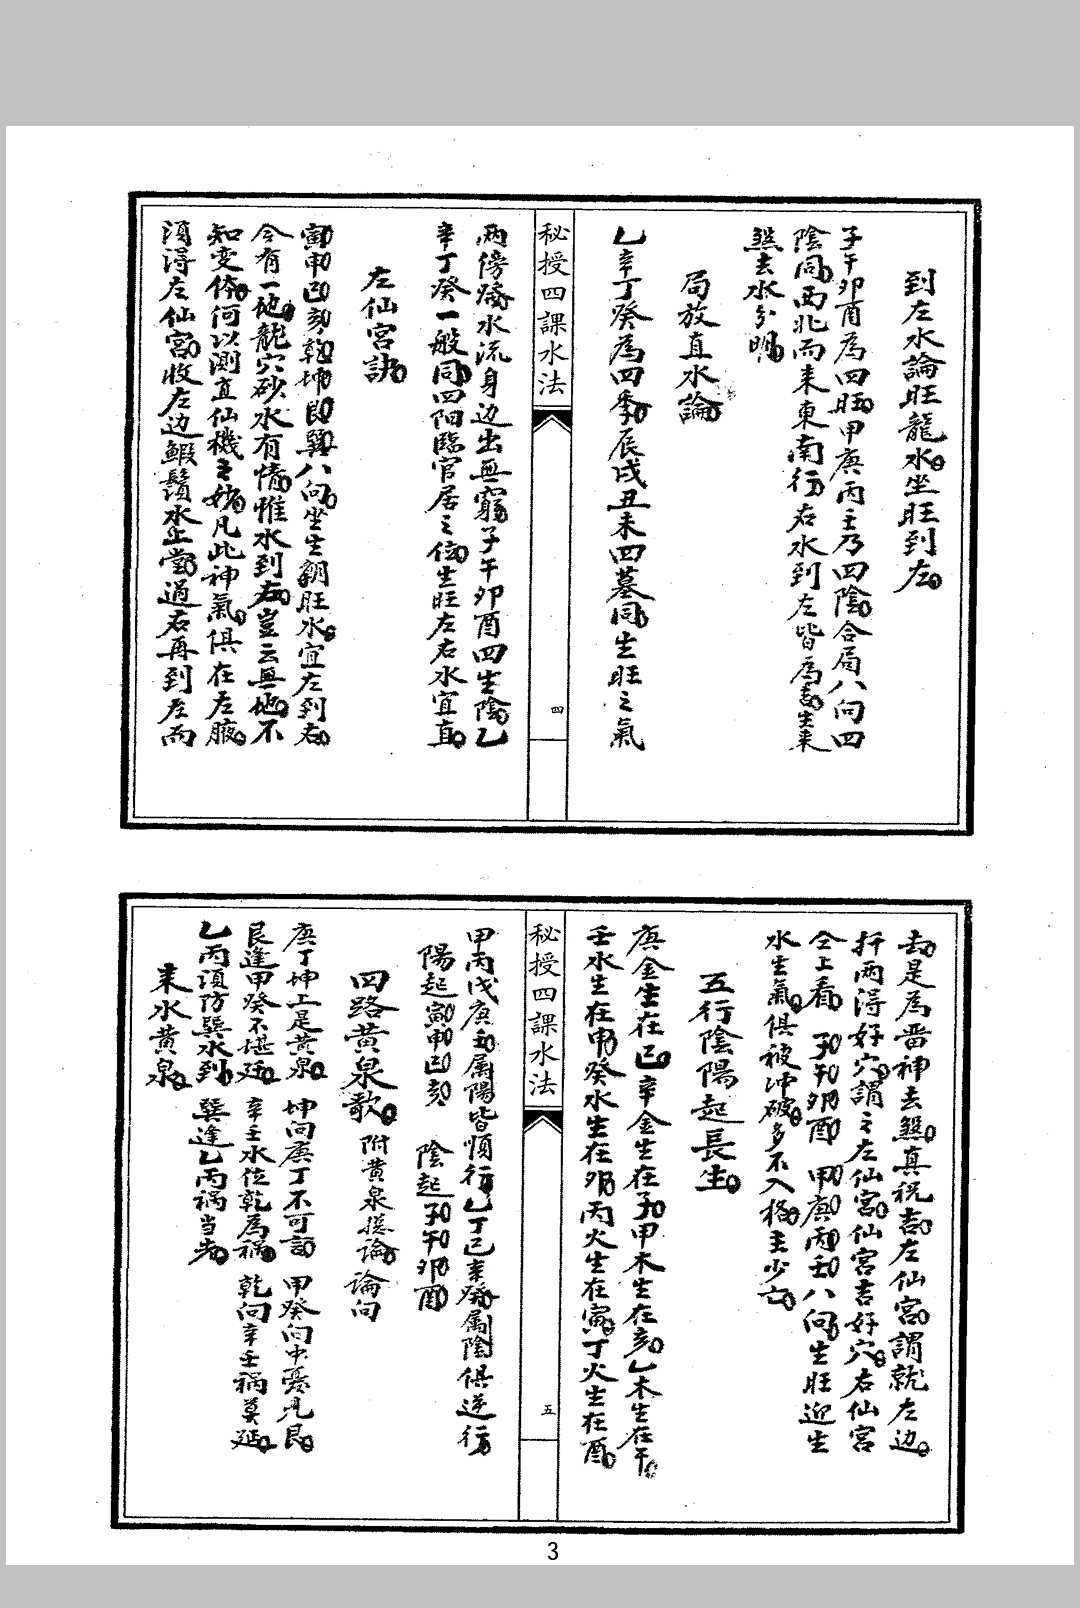 到左水論旺龍水坐旺到左
子午卯酉為四旺甲庚丙壬乃四陰合局八向四
陰同西北而来東南行右水到左皆為吉生来
煞去水分明
局放直水論
乙辛丁癸為四季辰戌丑未四墓同生旺之氣
秘授四課水法
四
兩傍癸水流身边出無窮子午卯酉四生陰乙
辛丁癸一般同四阳臨官居之位生旺左右水宜直
左仙宮訣
寅申巳亥乾坤艮巽八向坐生朝旺水宜左到右
今有一地龍穴砂水有情惟水到右豈云無地不
知变体何以測直仙機之妙凡此神氣俱在左腋
須淂左仙宮收左边鰕鬚水止堂過右再到左而
去是為畨神去煞真祝吉左仙宮謂就左边
扦兩淂好穴謂之左仙宮仙宮吉好穴右仙宮
仝上看 子午卯酉 甲庚丙壬八向生旺迎生
水生氣俱被冲破多不入格主少亡
五行陰陽起長生
庚金生在巳辛金生在子甲木生在亥乙木生在午
壬水生在申癸水生在卯丙火生在寅丁火生在酉
秘授四課水法
五
甲丙戊庚壬属陽皆順行乙丁己辛癸属陰俱逆行
陽起寅申巳亥 陰起子午卯酉
四路黄泉歌 附黄泉総論 論向
庚丁坤上是黄泉 坤向庚丁不可言 甲癸向中憂見艮
艮逢甲癸不堪廷 辛壬水位乾為禍 乾向辛壬禍莫延
乙丙須防巽水到 巽逢乙丙禍当先
来水黄泉
3